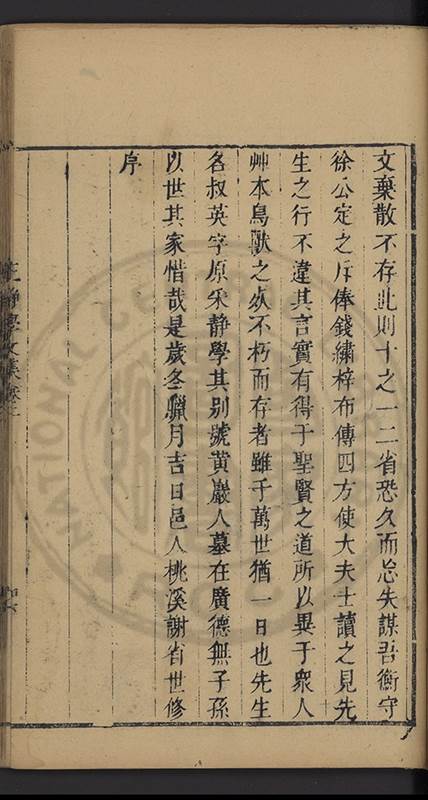 文棄散不存此則十之一二省恐久而忘失謀吾衡守
徐公定之斥俸錢繡梓布傳四方使大夫士讀之見先
生之行不違其言實有得于聖賢之道所以異于衆人
艸本鳥獸之處不朽而存者雖千萬世猶一日也先生
名叔英字原采静學其别號黄巖人墓在廣德無子孫
以世其家惜哉是歲冬臘月吉日邑人桃溪謝省世修
序
王静學文集卷之